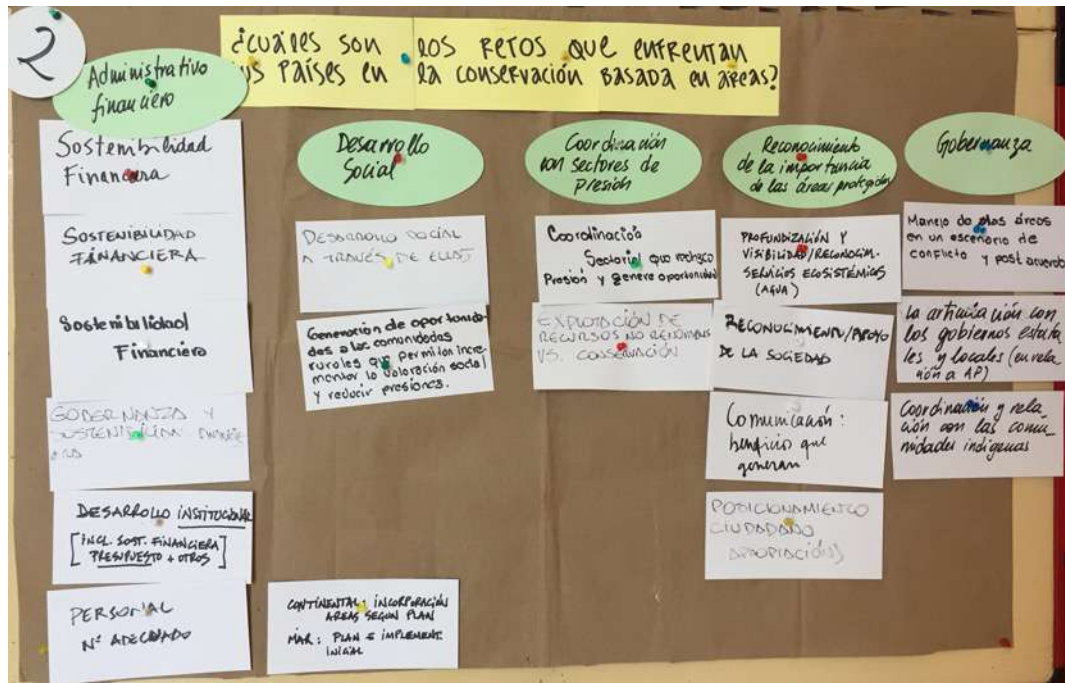 2
¿CUÁLES SON LOS RETOS QUE ENFRENTAN
SUS PAÍSES EN LA CONSERVACIÓN BASADA EN ÁREAS?
Administrativo
financiero
Sostenibilidad
Financiera
SOSTENIBILIDAD
FINANCIERA
Sostenibilidad
Financiero
GOBERNANZA Y
SOSTENIBILIDAD
DESARROLLO INSTITUCIONAL
[INCL. SOST. FINANCIERA
PRESUPUESTO + OTROS]
PERSONAL
Nº ADECUADO
Desarrollo
Social
DESARROLLO SOCIAL
A TRAVÉS DE ELLAS
Generación de oportunida-
des a las comunidades
rurales que permitan incre-
mentar la valoración social
y reducir presiones.
CONTINENTAL: INCORPORACIÓN
AREAS SEGÚN PLAN
MAR: PLAN E IMPLEMENT.
INICIAL
Coordinación
con sectores de
presión
Coordinación
Sectorial que reduzca
Presión y genere oportunidad
EXPLOTACIÓN DE
RECURSOS NO RENOVABLES
VS. CONSERVACIÓN
Reconocimiento
de la importancia
de las áreas protegidas
PROFUNDIZACIÓN Y
VISIBILIDAD/RECONOCIM.
SERVICIOS ECOSISTÉMICOS
(AGUA)
RECONOCIMIENTO/APOYO
DE LA SOCIEDAD
Comunicación:
beneficio que
generan
POSICIONAMIENTO
CIUDADANO
APROPIACIÓN)
Gobernanza
Manejo de las áreas
en un escenario de
conflicto y post acuerdo
La articulación con
los gobiernos estata-
les y locales (en rela-
ción a AP)
Coordinación y rela-
ción con las comu-
nidades indígenas